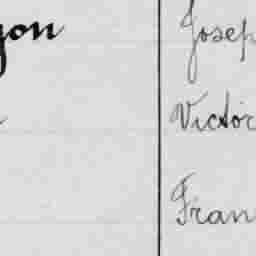 yon Josep
Victor
Fran